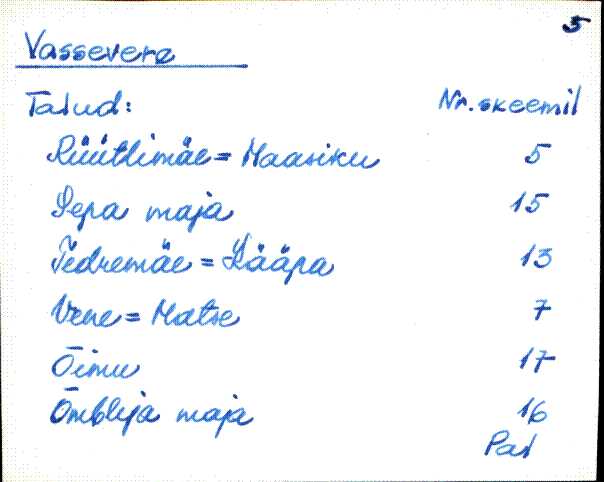 5
Vassevere
Talud: Nr. skeemil
Rüütlimäe = Maasiku 5
Sepa maja 15
Tedremäe = Lääpa 13
Vene = Matse 7
Õimu 17
Õmblija maja 16
Pal